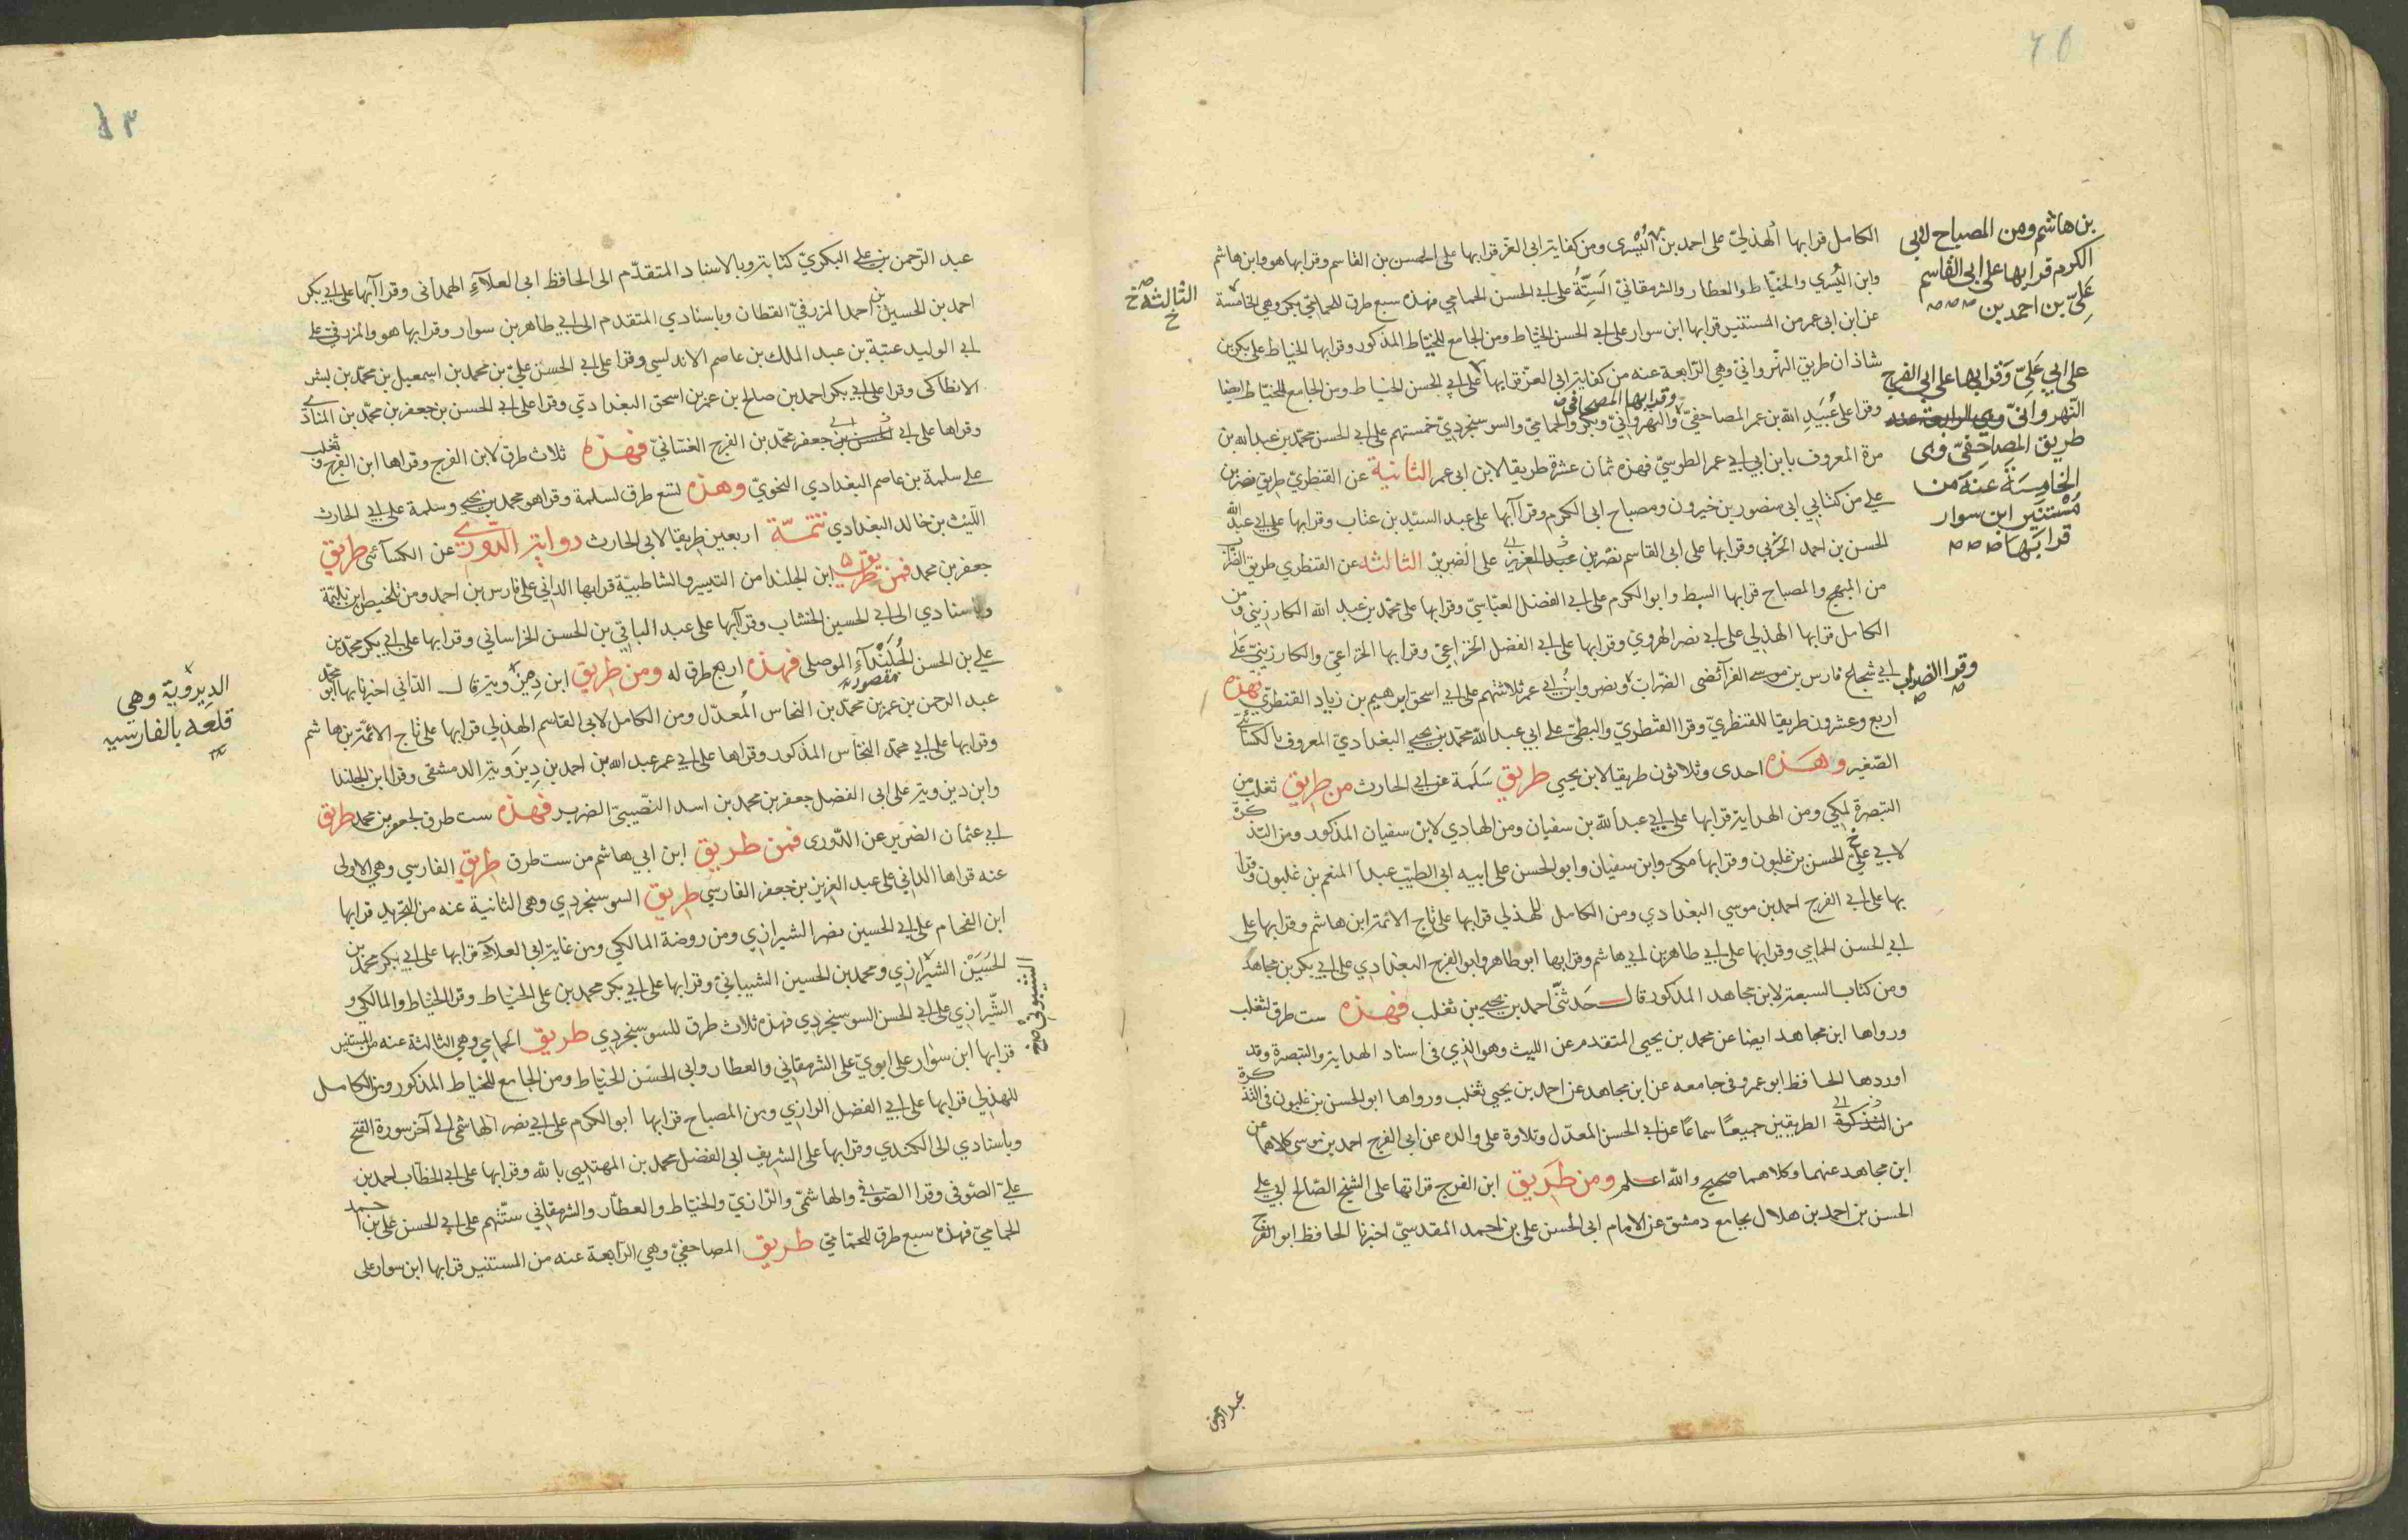 الكامل قرا بها الهذلي على احمد بن اليُسْرى ومن كفاية ابى العز قرا بها على الحسن بن القاسم وقرا بها هو وابن هاشم
وابن اليُسري والخيّاط والعطار والشرمقانيّ السِتَّةُ على ابي الحسن الحمامي فهذه سبع طرق للحماميّ بكر وهي الخامسة
عن ابن ابى عمر من المستنير قرا بها ابن سوار على ابي الحسن الخيّاط ومن الجامع للخيّاط المذكور وقرا بها الخياط على بكر بن
شاذان طريق النهرواني وهي الرّابعة عنه من كفاية ابى العزّ قرا بها على ابي الحسن الخيّاط ومن الجامع للخيّاط ايضا
وقرا على عُبَيدِ الله بن عمر المصاحفيّ وقرا بها المصاحفي والنهروانيّ وبكر والحماميّ والسوسنجرديّ خمستهم على ابي الحسن محمّد بن عبد الله بن
مرة المعروف بابن ابي عمر الطوسيّ فهذه ثمان عشرة طريقا لابن ابى عمر الثانية عن القنطريّ طريق نصر بن
علي من كتابي ابى منصور بن خيرون ومصباح ابى الكرم وقرآ بها على عبد السيّد بن عتاب وقرا بها على ابي عبد الله
الحسن بن احمد الحربي وقرا بها على ابى القاسم نصر بن عبد العزيز على الضرير الثالثة عن القنطري طريق الضرّاب
من المبهج والمصباح قرا بها السبط وابو الكرم على ابي الفضل العبّاسيّ وقرا بها على محمّد بن عبد الله الكارزيني ومن
الكامل قرا بها الهذلي على ابي نصر الهرويّ وقرا بها على ابي الفضل الخزاعيّ وقرا بها الخزاعيّ والكارزينيّ عَلَى
ابي شجاع فارس بن موسى الفرآئضى الضرّاب وقرا الضراب ونصر وابن ابي عمر ثلاثتهم على ابي اسحق ابرهيم بن زياد القنطريّ فهذه
اربع وعشرون طريقا للقنطريّ وقرا القنطريّ والبطّيّ على ابي عبد اللّه محمّد بن يحيى البغداديّ المعروف بالكسائيّ
الصّغير وهَذه احدى وثلاثون طريقا لابن يحيى طريق سَلَمة عن ابي الحارث من طريق ثعلب من
التبصرة لمكي ومن الهداية قرا بها على ابي عبد اللّه بن سفيان ومن الهادي لابن سفيان المذكور ومن التذكرة
لابي علي الحسن بن غلبون وقرا بها مكى وابن سفيان وابو الحسن على ابيه ابى الطيّب عبد المنعم بن غلبون وقرا
بها على ابي الفرج احمد بن موسى البغدادي ومن الكامل للهذلي قرا بها على تاج الائمة ابن هاشم وقرا بها على
ابي الحسن الحمامي وقرا بها على ابي طاهر بن ابي هاشم وقرا بها ابو طاهر وابو الفرج البغدادي على ابي بكر بن مجاهد
ومن كتاب السبعة لابن مجاهد المذكور قال حَدثنّى احمد بن يحيى بن ثعلب فهذه ست طرق لثعلب
ورواها ابن مجاهد ايضا عن محمد بن يحيى المتقدم عن الليث وهو الذي فى اسناد الهداية والتبصرة وقد
اوردها الحافظ ابو عمرو فى جامعه عن ابن مجاهد عن احمد بن يحيى ثعلب ورواها ابو الحسن بن غلبون فى التذكرة
من التذكرة الطريقين جميعًا سماعًا عن ابي الحسن المعدّل وتلاوة على والده عن ابى الفرج احمد بن موسى كلاهما عن
ابن مجاهد عنهما وكلاهما صحيح واللّه اعلم ومن طَريق ابن الفرج قراتها على الشيخ الصّالح ابي علي
الحسن بن احمد بن هلال بجامع دمشق عن الامام ابى الحسن على بن احمد المقدسيّ اخبرنا الحافظ ابو الفرج
عبد الرحمن
بن هاشم ومن المصباح لابي
الكرم قرا بها على ابى القاسم
عَلِيّ بن احمد بن
على ابي عَلِيّ وَقرا بها على ابي الفرج
النّهروانيّ وهي الرابعة عنه
طريق المصاحفيّ وهى
الخامِسَة عَنهُ من
مُسْتَنير ابن سوار
قرا بَها
وقرا الضراب
الثالثة خ
عبد الرّحمن بن على البكريّ كتابة وبالاسناد المتقدّم الى الحافظ ابى العلآءِ الهمدانى وقرا آبها على ابي بكر
احمد بن الحسين بن احمد المزرفيّ القطان وباسنادي المتقدم الى ابي طاهر بن سوار وقرا بها هو والمزرفى على
ابي الوليد عتبة بن عبد الملك بن عاصم الاندلسي وقرا على ابي الحسن عليّ بن محمد بن اسمعيل بن محمّد بن بشر
الانطاكى وقرا على ابي بكر احمد بن صالح بن عمر بن اسحق البغدادي وقرا على ابي الحسن بن جعفر بن محمّد بن المنادي
وقراها على ابي الحسن بن جعفر محمّد بن الفرج الغسّانيّ فهذه ثلاث طرق لابن الفرج وقراها ابن الفرج وثعلب
على سلمة بن عاصم البغدادي النحويّ وهذه تسع طرق لسلمة وقرا هو محمد بن يحيى وسلمة على ابي الحارث
اللّيْث بن خالد البغدادي تتمّة اربعين طريقا لابى الحارث رواية الدّوري عن الكسآئى طريق
جعفر بن محمد فمن طريق ابن الجلندا من التيسير والشاطبيّة قرا بها الداني على فارس بن احمد ومن تلخيص ابن بليمة
وباسنادي الى ابي الحسين الخشاب وقرآ بها على عبد الباقى بن الحسن الخراساني وقرا بها على ابي بكر محمّد بن
علي بن الحسن الجُلَنْدآءِ الموصلى فهذه اربع طرق له ومن طريق ابن دِيزَوية قال الدّاني اخبرنا بها ابو محمّد
عبد الرحمن بن عمر بن محمّد بن النحاس المُعدّل ومن الكامل لابى القاسم الهذلي قرا بها على تاج الائمّة بن هاشم
وقرا بها على ابي محمّد النحّاس المذكور وقراها على ابي عمر عبد الله بن احمد بن دِيزَوية الدمشقى وقرا ابن الجلندا
وابن ديزوية على ابى الفضل جعفر بن محمد بن اسد النّصيبى الضرير فهذه ست طرق لجعفر بن محمد طريق
ابي عثمان الضرير عن الدّورى فمن طريق ابن ابي هاشم من ست طرق طريق الفارسي وهي الاولى
عنه قراها الداني على عبد العزيز بن جعفر الفارسي طريق السوسنجردي وهى الثانية عنه من التجريد قرا بها
ابن الفحام على ابي الحسين نصر الشيرازي ومن روضة المالكي ومن غاية ابى العلآءِ قرا بها على ابي بكر محمد بن
الحُسَيْن الشيرازي ومحمد بن الحسين الشيبانيّ وقرا بها على ابي بكر محمد بن على الخيّاط وقرا الخيّاط والمالكي و
الشّيرازي على ابي الحسن السوسنجردي فهذه ثلاث طرق للسوسنجردي طريق الحمامي وهي الثالثة عنه من المستنير
قرا بها ابن سوار على ابوي على الشرمقاني والعطار وابى الحسَن الخيّاط ومن الجامع للخياط المذكور ومن الكامل
للهذلي قرا بها على ابي الفضل الرازي ومن المصباح قرا بها ابو الكرم على ابي نصر الهاشمى الى آخر سورة الفتح
وباسنادي الى الكندي وقرا بها على الشريف ابى الفضل محمد بن المهتدي باللّه وقرا بها على ابي الخطاب احمد بن
عليّ الصّوفى وقرا الصّوفي والهاشميّ والرّازيّ والخيّاط والعطّار والشرمقاني ستّتهم على ابي الحسن على بن احمد
الحماميّ فهذه سبع طرق للحمّاميّ طريق المصاحفيّ وهي الرّابعة عنه من المستنير قرا بها ابن سوار على
الديزوية وهي
قلعة بالفارسيه
مقصورة